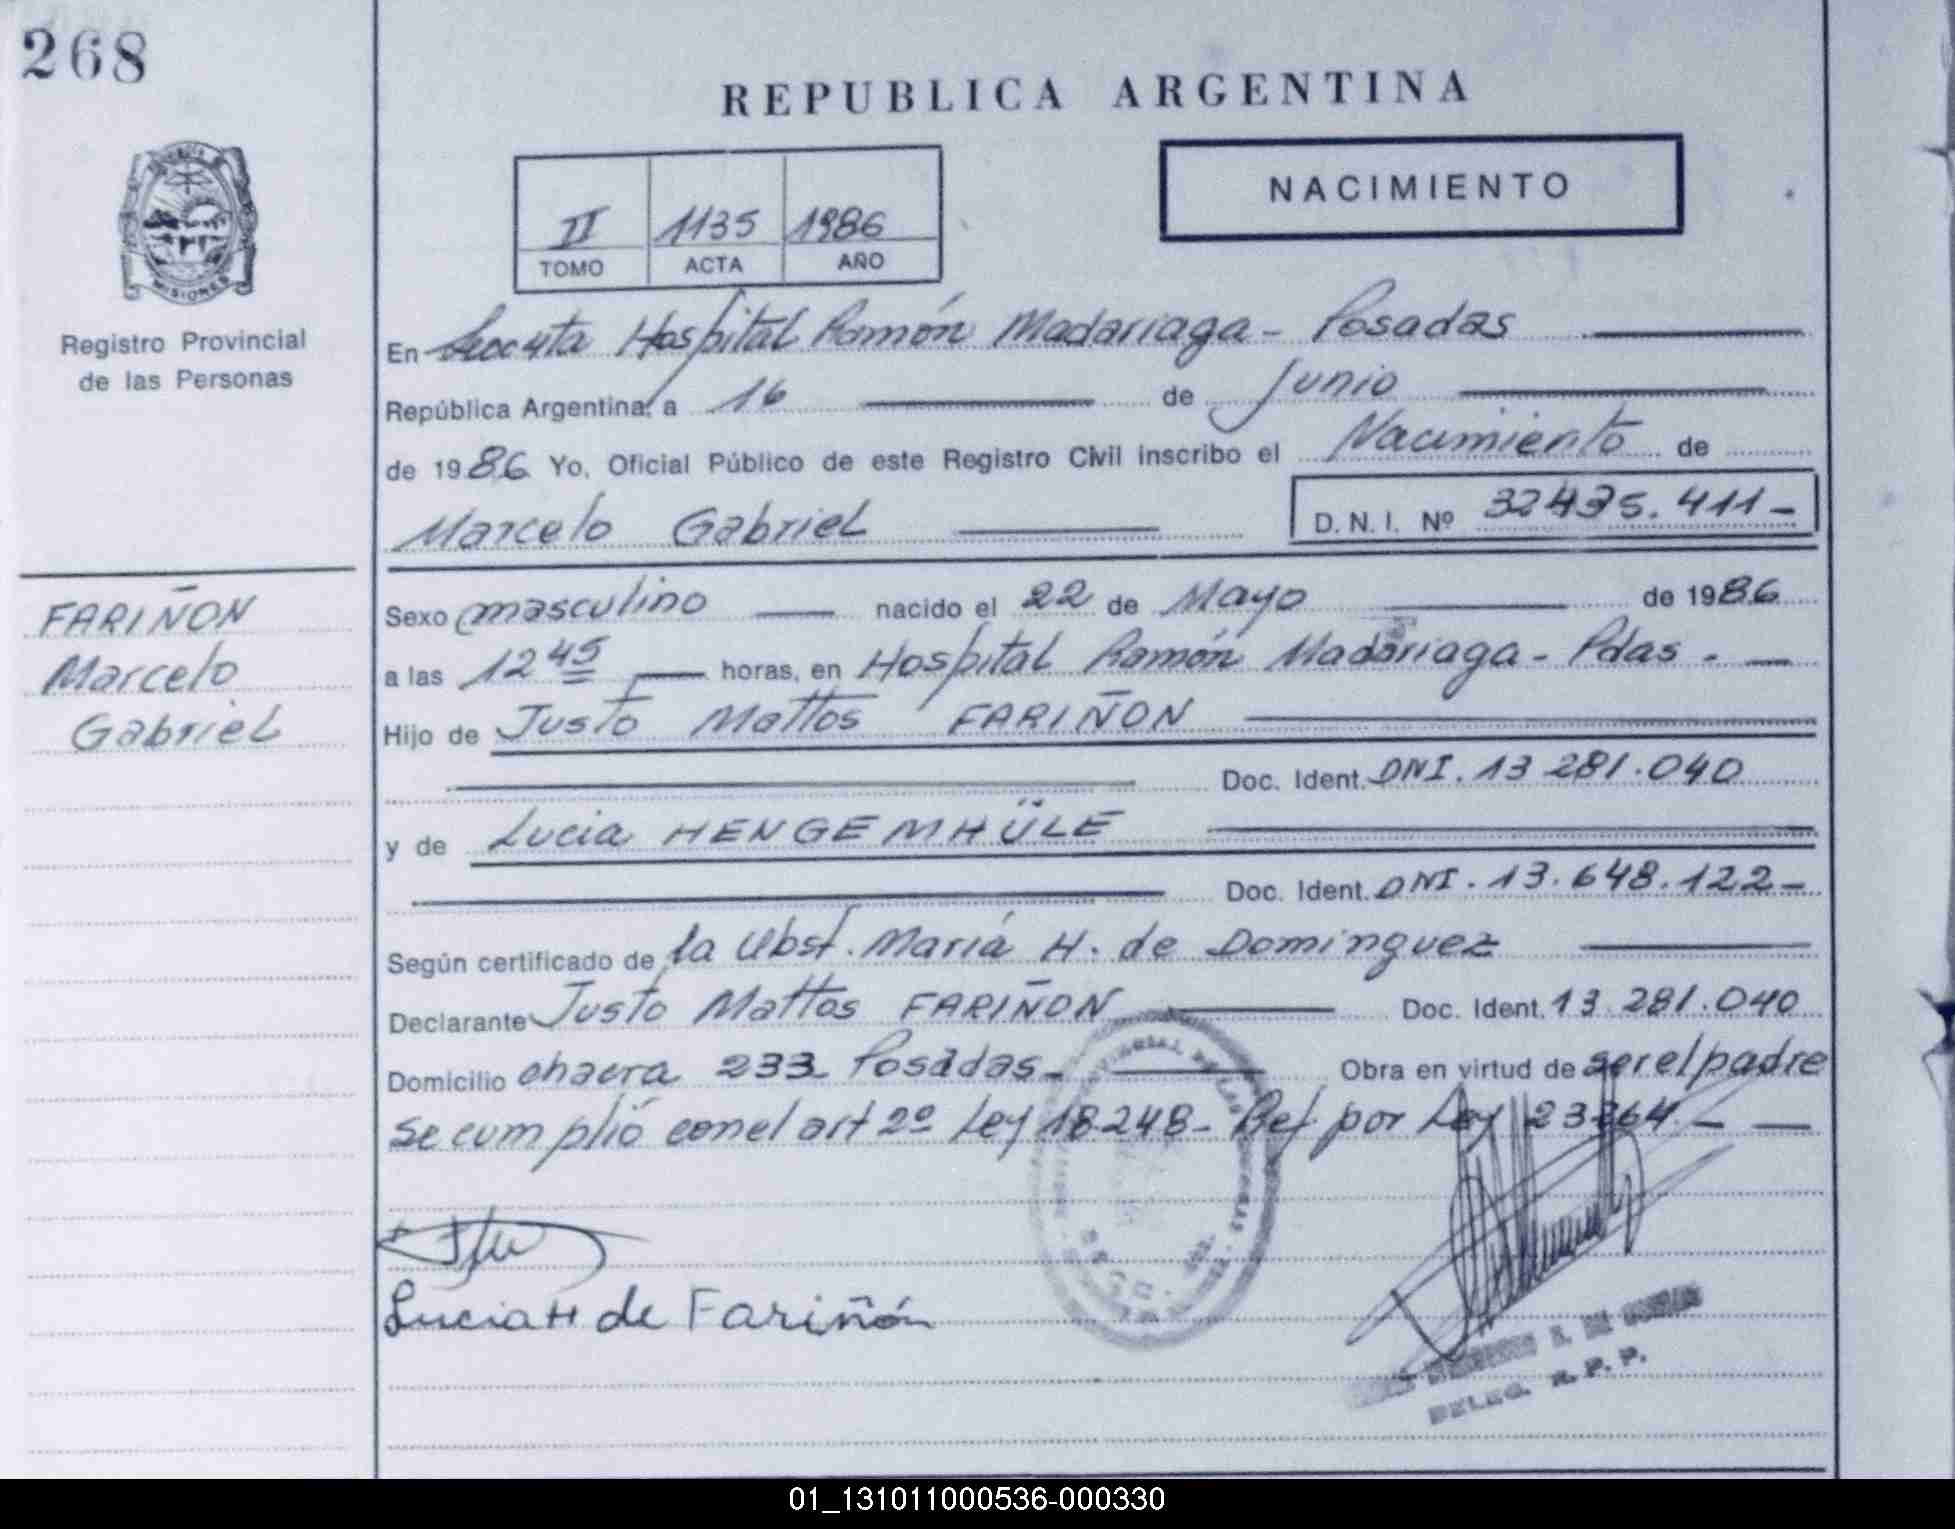 268
REPUBLICA ARGENTINA
NACIMIENTO
II 1135 1986
TOMO ACTA AÑO
MISIONES
Registro Provincial
de las Personas
En Hospital Ramón Madariaga - Posadas
República Argentina, a 16 de Junio
de 1986 Yo, Oficial Público de este Registro Civil inscribo el Nacimiento de
Marcelo Gabriel D.N.I. Nº 32435.411-
FARIÑON
Marcelo
Gabriel
Sexo masculino nacido el 22 de Mayo de 1986
a las 12 45 horas, en Hospital Ramón Madariaga - Pdas -
Hijo de Justo Mattos FARIÑON
Doc. Ident. DNI. 13 281.040
y de Lucia HENGEMHÜLE
Doc. Ident. DNI. 13.648.122-
Según certificado de la Obst. María H. de Dominguez
Declarante Justo Mattos FARIÑON Doc. Ident. 13.281.040
Domicilio chacra 233- Posadas- Obra en virtud de ser el padre
se cumplió con el art 2º Ley 18248- Ref por Ley
Lucia H de Fariñón
DELEG. R.P.P.
01_131011000536-000330